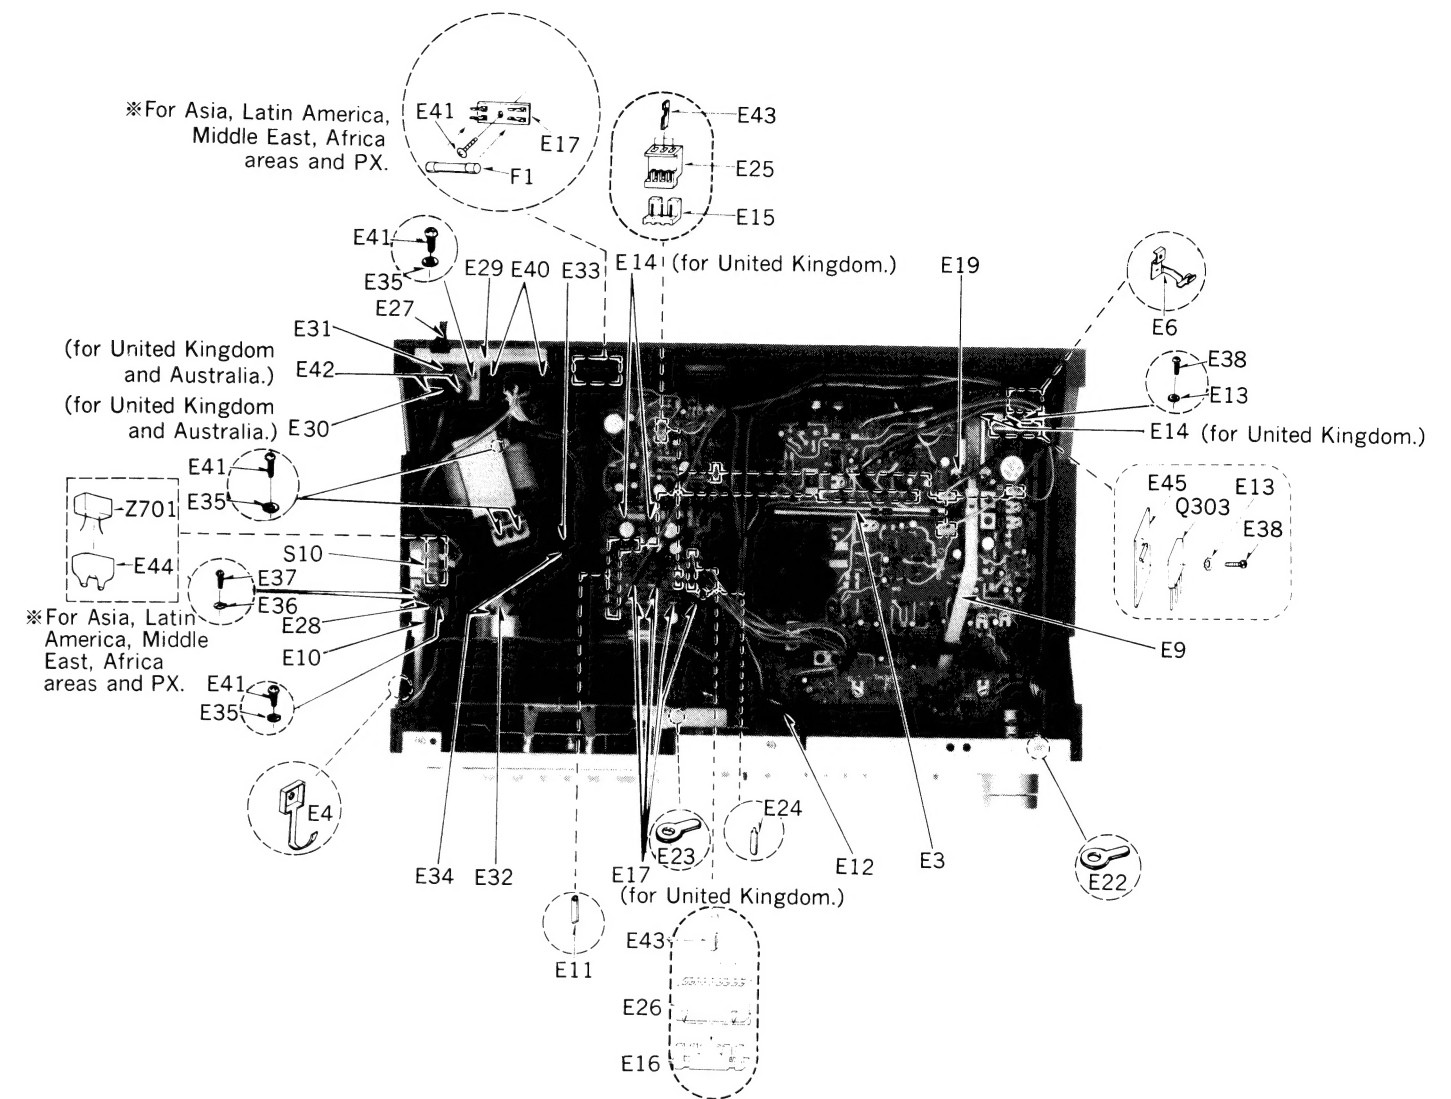 ※For Asia, Latin America,
Middle East, Africa
areas and PX.
E41
E17
F1
E43
E25
E15
E41
E35
E29
E40
E33
E14 (for United Kingdom.)
E19
E6
E27
E31
(for United Kingdom
and Australia.)
E42
(for United Kingdom
and Australia.)
E30
E38
E13
E14 (for United Kingdom.)
E41
E35
E45
Q303
E13
E38
Z701
E44
S10
E37
E36
※For Asia, Latin
America, Middle
East, Africa
areas and PX.
E28
E10
E9
E41
E35
E4
E34
E32
E17
(for United Kingdom.)
E23
E24
E12
E3
E22
E11
E43
E26
E16